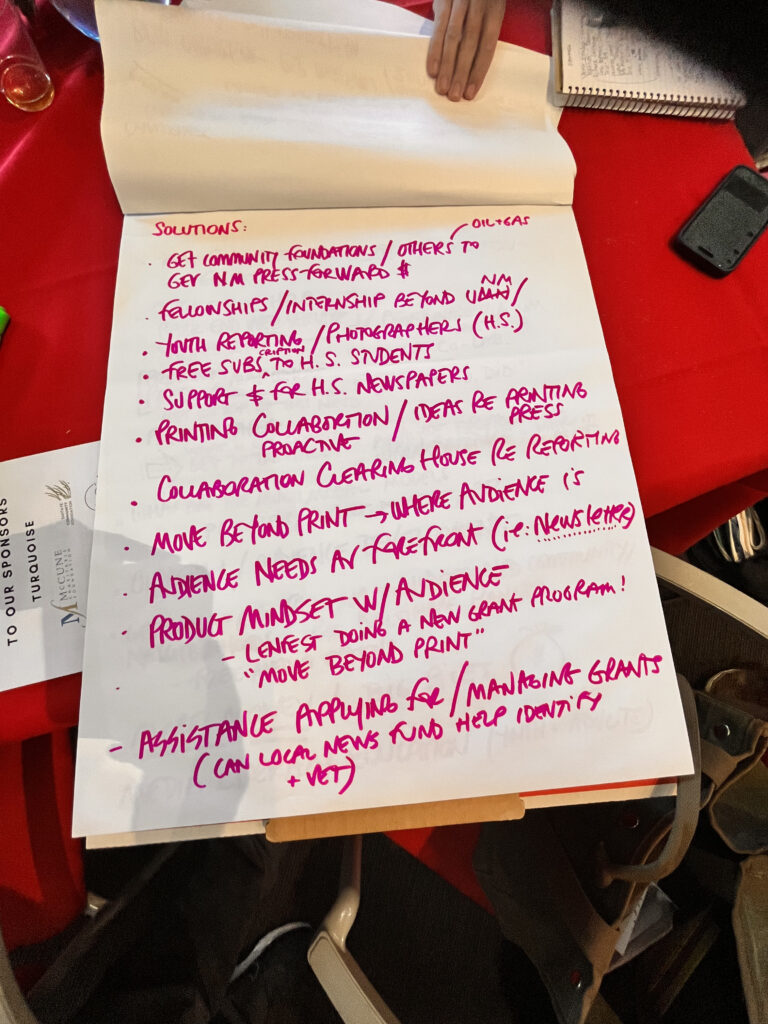 SOLUTIONS:
OIL + GAS
· GET COMMUNITY FOUNDATIONS / OTHERS TO
GEV NM PRESS FORWARD $
NM
· FELLOWSHIPS / INTERNSHIP BEYOND /
· YOUTH REPORTING / PHOTOGRAPHERS (H.S.)
· FREE SUBSCRIPTION TO H.S. STUDENTS
· SUPPORT $ FOR H.S. NEWSPAPERS
· PRINTING COLLABORTION / IDEAS RE PRINTING
PROACTIVE PRESS
· COLLABORATION CLEARING HOUSE RE REPORTING
· MOVE BEYOND PRINT → WHERE AUDIENCE IS
· AUDIENCE NEEDS AT FOREFRONT (ie: Newsletter)
· PRODUCT MINDSET W/ AUDIENCE
- LENFEST DOING A NEW GRANT PROGRAM!
"MOVE BEYOND PRINT"
- ASSISTANCE APPLYING FOR / MANAGING GRANTS
(CAN LOCAL NEWS FUND HELP IDENTIFY
+ VET)
TO OUR SPONSORS
TURQUOISE
McCUNE